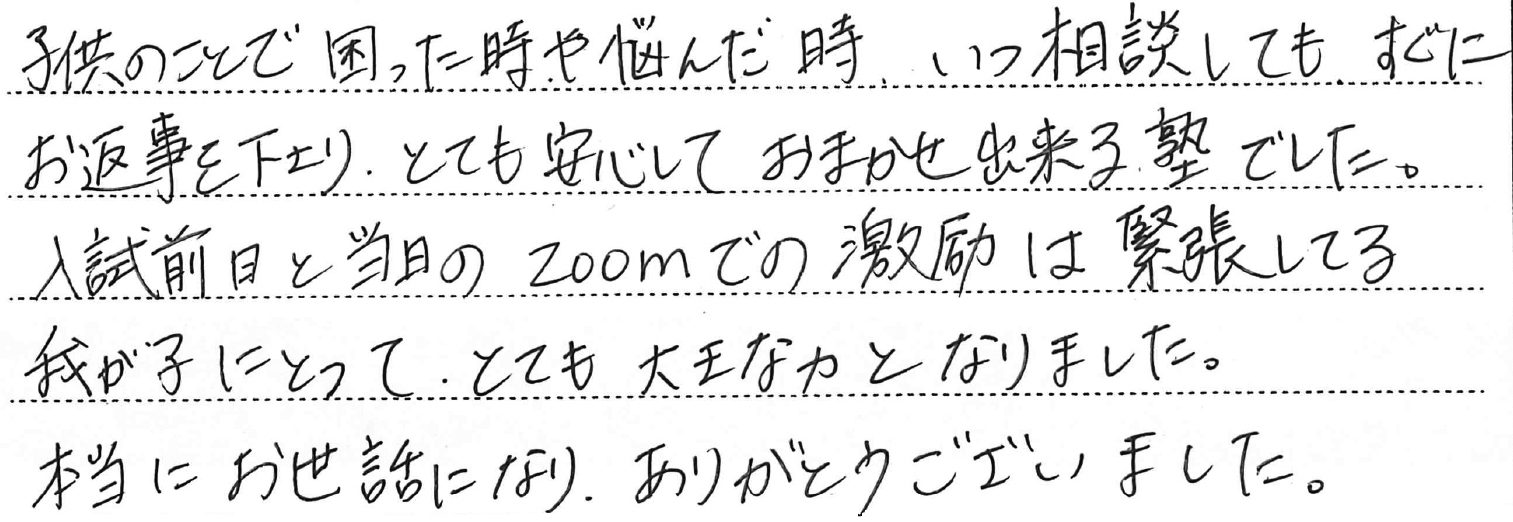 子供のことで困った時や悩んだ時、いつ相談しても、すぐに
お返事を下さり、とても安心しておまかせ出来る塾でした。
入試前日と当日のzoomでの激励は緊張してる
我が子にとって、とても大きな力となりました。
本当にお世話になり、ありがとうございました。